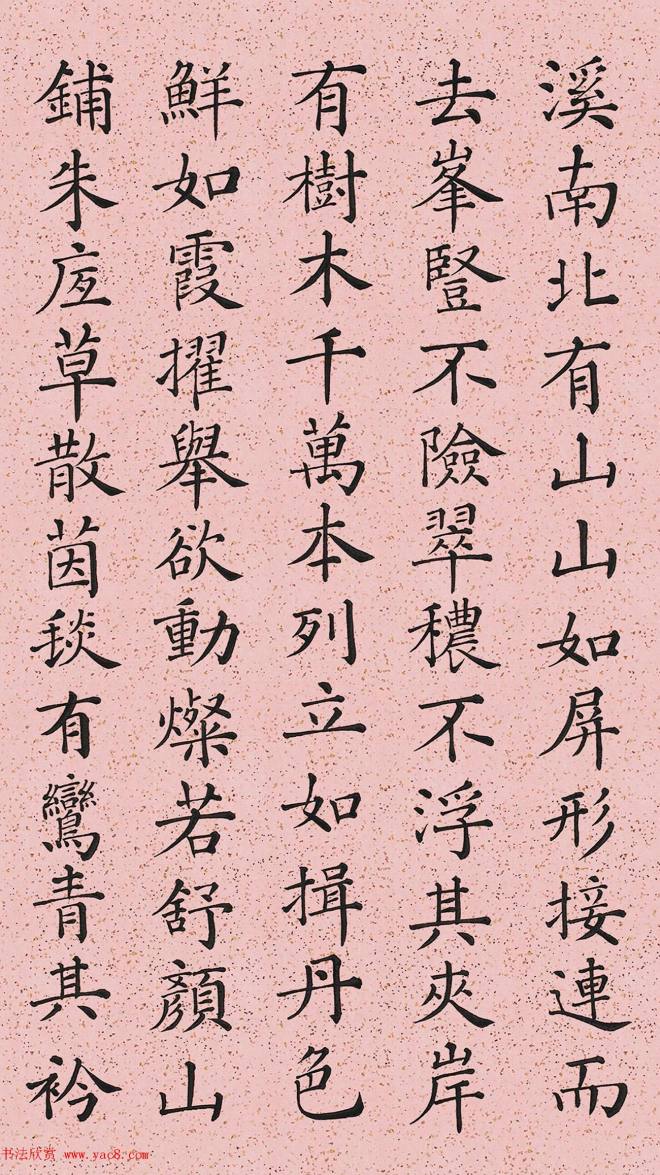 溪南北有山山如屏形接連而
去峯豎不險翠穠不浮其夾岸
有樹木千萬本列立如揖丹色
鮮如霞擢舉欲動燦若舒顏山
鋪朱庋草散茵毯有鸞青其衿
书法欣赏 www.yac8.com